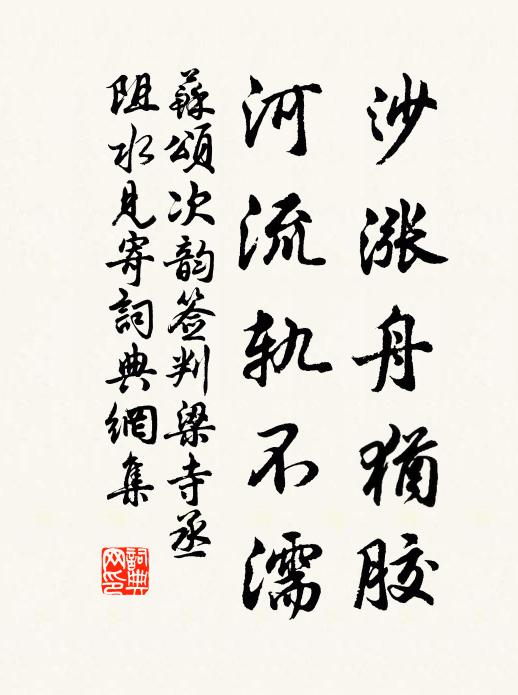 沙漲舟猶膠
河流軌不濡
蘇頌次韵簽判梁寺丞
阻水見寄詞典網集
詞典
网印